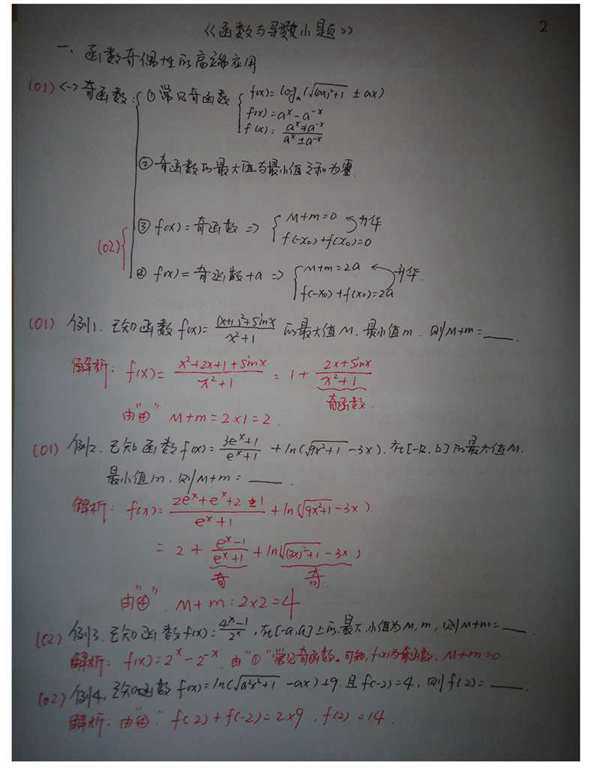 《函数与导数小题》
2
一、函数奇偶性的高端应用
(01) <一>奇函数: ①常见奇函数 f(x)=logₐ(√(ax)²+1 ± ax)
f(x)=aˣ-a⁻ˣ
f(x)=
②奇函数的最大值与最小值之和为零
(02) ③ f(x)=奇函数 => M+m=0 升华
f(-x₀)+f(x₀)=0
④ f(x)=奇函数+a => M+m=2a 升华
f(-x₀)+f(x₀)=2a
(01) 例1. 已知函数f(x)= (x+1)²+sinx / x²+1 的最大值M, 最小值m, 则M+m=___.
解析: f(x)= x²+2x+1+sinx / x²+1 = 1+ 2x+sinx / x²+1
奇函数
由"④" M+m=2×1=2.
(01) 例2. 已知函数f(x)= 3eˣ+1 / eˣ+1 +ln(√9x²+1 -3x), 在[-b, b]的最大值M,
最小值m, 则M+m=___.
解析: f(x)= / eˣ+1 +ln(√9x²+1 -3x)
= 2+ eˣ-1 / eˣ+1 +ln(√(3x)²+1 -3x)
奇 奇
由"④", M+m=2×2=4
(02) 例3. 已知函数f(x)= 4ˣ-1 / 2ˣ, 在[-a,a]上的最大,小值为M, m, 则M+m=___
解析: f(x)=2ˣ-2⁻ˣ. 由"①"常见奇函数, 可知, f(x)为奇函数, M+m=0
(02) 例4. 已知函数f(x)=ln(√a²x²+1 -ax)+9, 且f(-2)=4, 则f(2)=___.
解析: 由"④" f(2)+f(-2)=2×9, f(2)=14.